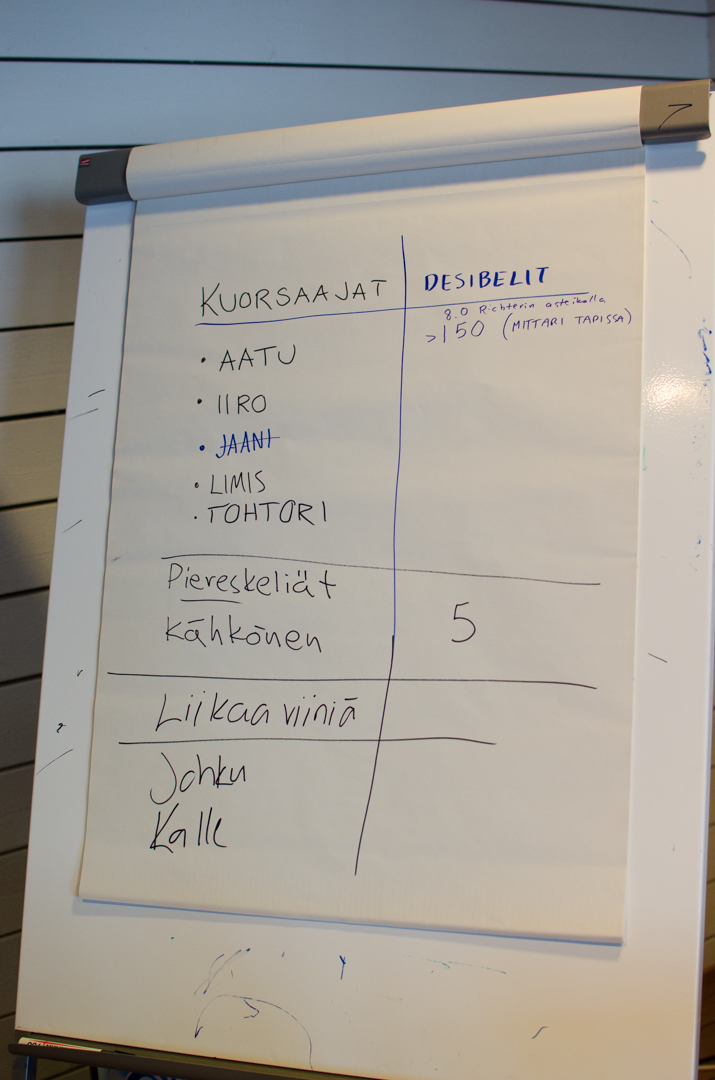 KUORSAAJAT
DESIBELIT
8.0 Richterin asteikolla
>150 (MITTARI TAPISSA)
• AATU
• IIRO
• JAANI
• LIMIS
• TOHTORI
Piereskeliät
Kähkönen
5
Liikaa viiniä
Johku
Kalle